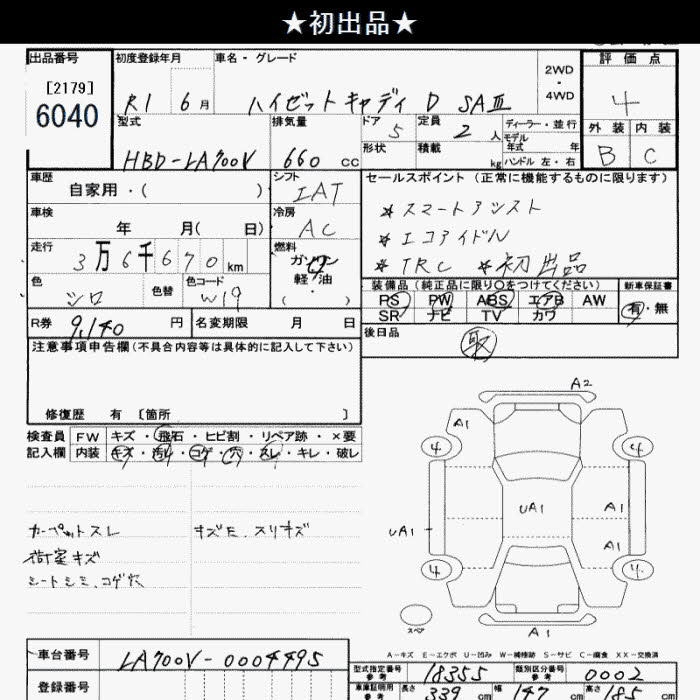 ★初出品★
出品番号 初度登録年月 車名・グレード 評価点
[2179]
6040
R1 6月 ハイゼットキャディ D SAⅢ
2WD
・
4WD
4
型式 排気量 ドア 定員 ディーラー・並行
HBD-LA700V 660 cc 5 2人
モデル
年式 年
形状 積載 kg ハンドル 左・右
外装 内装
B C
車歴
自家用・( )
シフト
IAT
セールスポイント (正常に機能するものに限ります)
車検
年 月( 日)
冷房
AC
*スマートアシスト
*エコアイドル
*TRC *初出品
走行
3万6千670km
燃料
ガソリン
軽・油
( ・ )
色 色替 色コード
シロ W19
装備品 (純正品に限り○をつけてください) 新車保証書
PS PW ABS エアB AW
SR ナビ TV カワ
有・無
R券 9,140 円 名変期限 月 日
後日品
取
注意事項申告欄 (不具合内容等は具体的に記入して下さい)
修復歴 有 〔箇所 〕
検査員 FW キズ・飛石・ヒビ割・リペア跡・×要
記入欄 内装 キズ・汚レ・コゲ・穴・スレ・キレ・破レ
カーペットスレ
荷室キズ
シートシミ、コゲ穴
キズE、スリキズ
A2
A1
4 4
UA1 UA1 A1
A1
4 4
スペア
A1
A-キズ E-エクボ U-凹み W-補修跡 S-サビ C-腐食 XX-交換済
車台番号 LA700V-0004495
登録番号
型式指定番号
参考
18355
類別区分番号
参考
0002
車庫証明用
参考
長さ 339 cm 幅 147 cm 高さ 185 cm